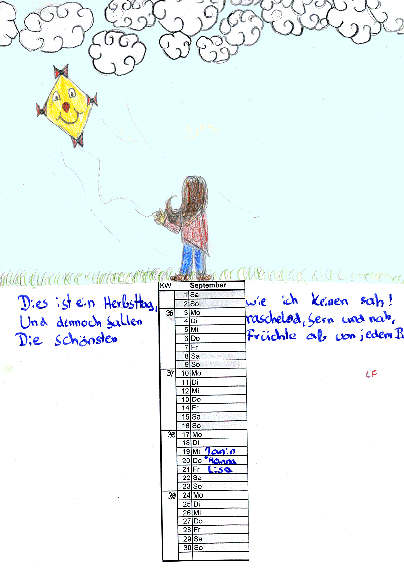 Dies ist ein Herbsttag, wie ich keinen sah!
Und dennoch fallen raschelnd, fern und nah,
Die schönsten Früchte ab von jedem B
LF
KW September
1 Sa
2 So
36 3 Mo
4 Di
5 Mi
6 Do
7 Fr
8 Sa
9 So
37 10 Mo
11 Di
12 Mi
13 Do
14 Fr
15 Sa
16 So
38 17 Mo
18 Di
19 Mi
20 Do Hanna
21 Fr Lisa
22 Sa
23 So
39 24 Mo
25 Di
26 Mi
27 Do
28 Fr
29 Sa
30 So